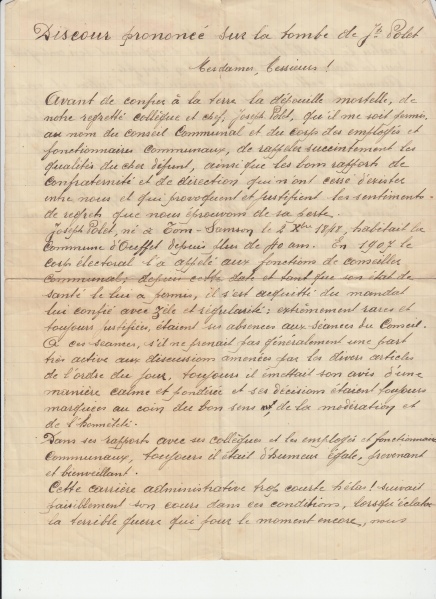 Discour prononcé sur la tombe de Jh Polet
Mesdames, Messieurs !
Avant de confier à la terre la dépouille mortelle, de
notre regretté collègue et chef, Joseph Polet, qu'il me soit permis,
au nom du conseil Communal et du corps des employés et
fonctionnaires Communaux, de rappeler succintement les
qualités du cher défunt, ainsi que les bons rapports de
confraternité et de direction qui n'ont cessé d'exister
entre nous et qui provoquent et justifient les sentiments
de regrets que nous éprouvons de sa perte.
Joseph Polet, né à Samson le 2 Xbre 1848, habitait la
Commune d'Ouffet depuis plus de ans. En 1907 le
corps électoral l'a appelé aux fonctions de conseiller
Communal; depuis cette date et tant que son état de
santé le lui a permis, il s'est acquitté du mandat
lui confié avec zèle et régularité: extrêmement rares et
toujours justifiées, étaient ses absences aux séances du Conseil.
A ces séances, s'il ne prenait pas généralement une part
très active aux discussions amenées par les divers articles
de l'ordre du jour, toujours il émettait son avis d'une
manière calme et pondérée et ses décisions étaient toujours
marquées au coin du bon sens, de la modération et
de l'honnêteté.
Dans ses rapports avec ses collègues et les employés et fonctionnaires
Communaux, toujours il était d'humeur égale, prévenant
et bienveillant.
Cette carrière administrative trop courte hélas ! suivait
paisiblement son cours dans ces conditions, lorsqu'éclata
la terrible guerre qui pour le moment encore, nous